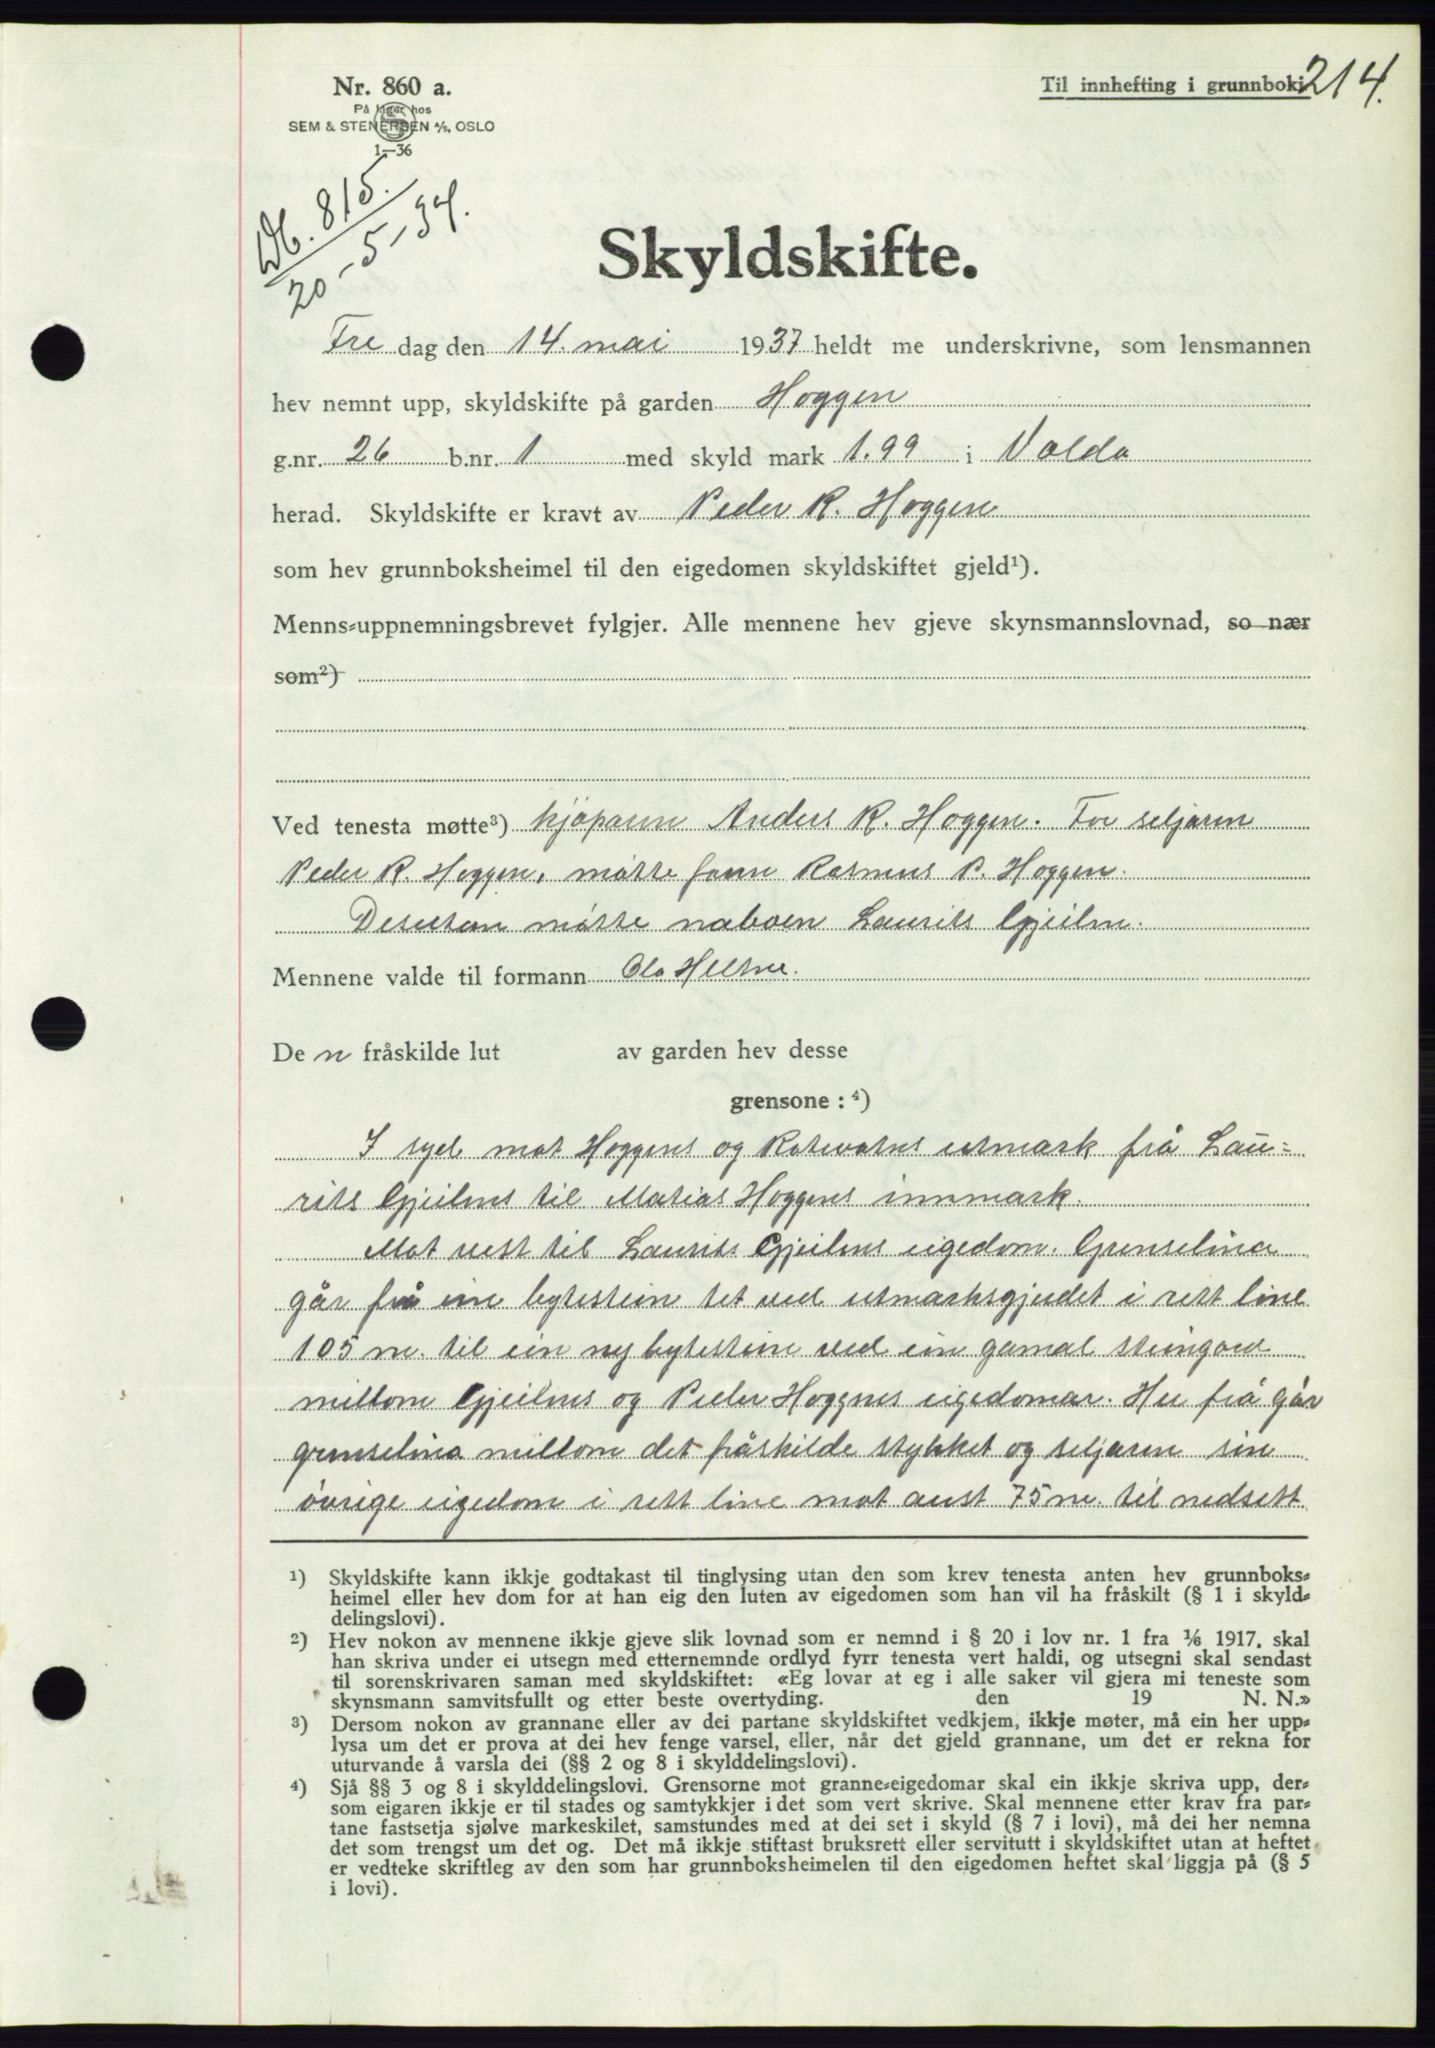 Nr. 860 a.
På lager hos
SEM & STENERSEN A/S, OSLO
1—36
Til innhefting i grunnboki
214.
Db. 815.
20-5-37.
Skyldskifte.
Fre dag den 14. mai 1937 heldt me underskrivne, som lensmannen
hev nemnt upp, skyldskifte på garden Hoggen
g.nr. 26 b.nr. 1 med skyld mark 1.99 i Volda
herad. Skyldskifte er kravt av Peder R. Hoggen
som hev grunnboksheimel til den eigedomen skyldskiftet gjeld¹).
Menns-uppnemningsbrevet fylgjer. Alle mennene hev gjeve skynsmannslovnad, so nær
som²)
Ved tenesta møtte³) kjøparen Anders R. Hoggen. For seljaren
Peder R. Hoggen, møtte sonen Rasmus P. Hoggen.
Desutan møtte naboen Laurits Gjeilen.
Mennene valde til formann Ola Heltne.
De n fråskilde lut av garden hev desse
grensone : ⁴)
I syd mot Hoggens og Rotevatns utmark frå Lau-
rits Gjeilens til Matias Hoggens innmark.
Mot vest til Laurits Gjeilens eigedom. Grenselina
går frå ein bytestein tet ved utmarksgjerdet i rett line
105 m. til ein ny bytestein ved ein gamal steingard
millom Gjeilens og Peder Hoggens eigedomar. Her frå går
grenselina millom det fråskilde stykket og seljaren sin
øvrige eigedom i rett line mot aust 75 m. til nedsett
¹) Skyldskifte kann ikkje godtakast til tinglysing utan den som krev tenesta anten hev grunnboks-
heimel eller hev dom for at han eig den luten av eigedomen som han vil ha fråskilt (§ 1 i skyld-
delingslovi).
²) Hev nokon av mennene ikkje gjeve slik lovnad som er nemnd i § 20 i lov nr. 1 fra 1/6 1917, skal
han skriva under ei utsegn med etternemnde ordlyd fyrr tenesta vert haldi, og utsegni skal sendast
til sorenskrivaren saman med skyldskiftet: «Eg lovar at eg i alle saker vil gjera mi teneste som
skynsmann samvitsfullt og etter beste overtyding. den 19 N. N.»
³) Dersom nokon av grannane eller av dei partane skyldskiftet vedkjem, ikkje møter, må ein her upp-
lysa um det er prova at dei hev fenge varsel, eller, når det gjeld grannane, um det er rekna for
uturvande å varsla dei (§§ 2 og 8 i skylddelingslovi).
⁴) Sjå §§ 3 og 8 i skylddelingslovi. Grensorne mot granne-eigedomar skal ein ikkje skriva upp, der-
som eigaren ikkje er til stades og samtykkjer i det som vert skrive. Skal mennene etter krav fra par-
tane fastsetja sjølve markeskilet, samstundes med at dei set i skyld (§ 7 i lovi), må dei her nemna
det som trengst um det og. Det må ikkje stiftast bruksrett eller servitutt i skyldskiftet utan at heftet
er vedteke skriftleg av den som har grunnboksheimelen til den eigedomen heftet skal liggja på (§ 5
i lovi).